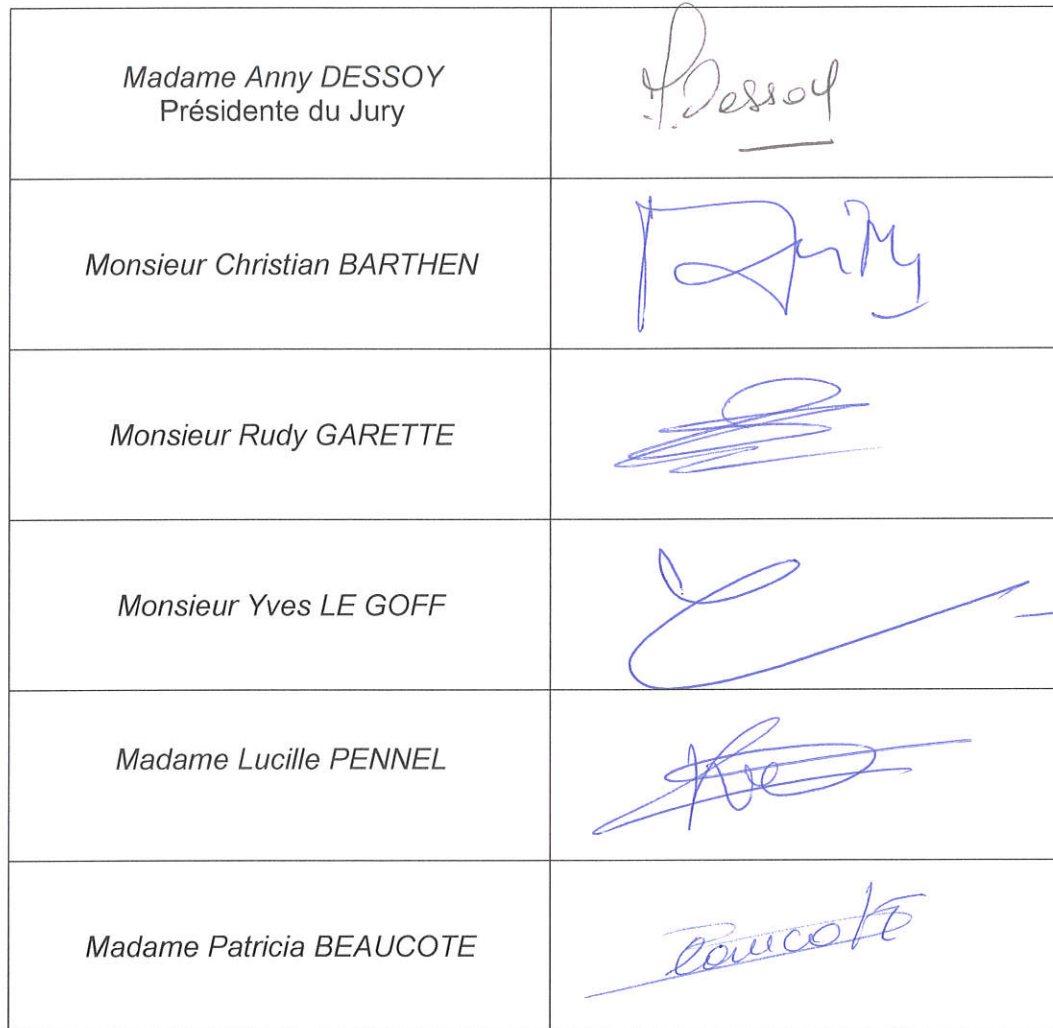 Madame Anny DESSOY
Présidente du Jury
A.Dessoy
Monsieur Christian BARTHEN
Monsieur Rudy GARETTE
Monsieur Yves LE GOFF
Madame Lucille PENNEL
Madame Patricia BEAUCOTE